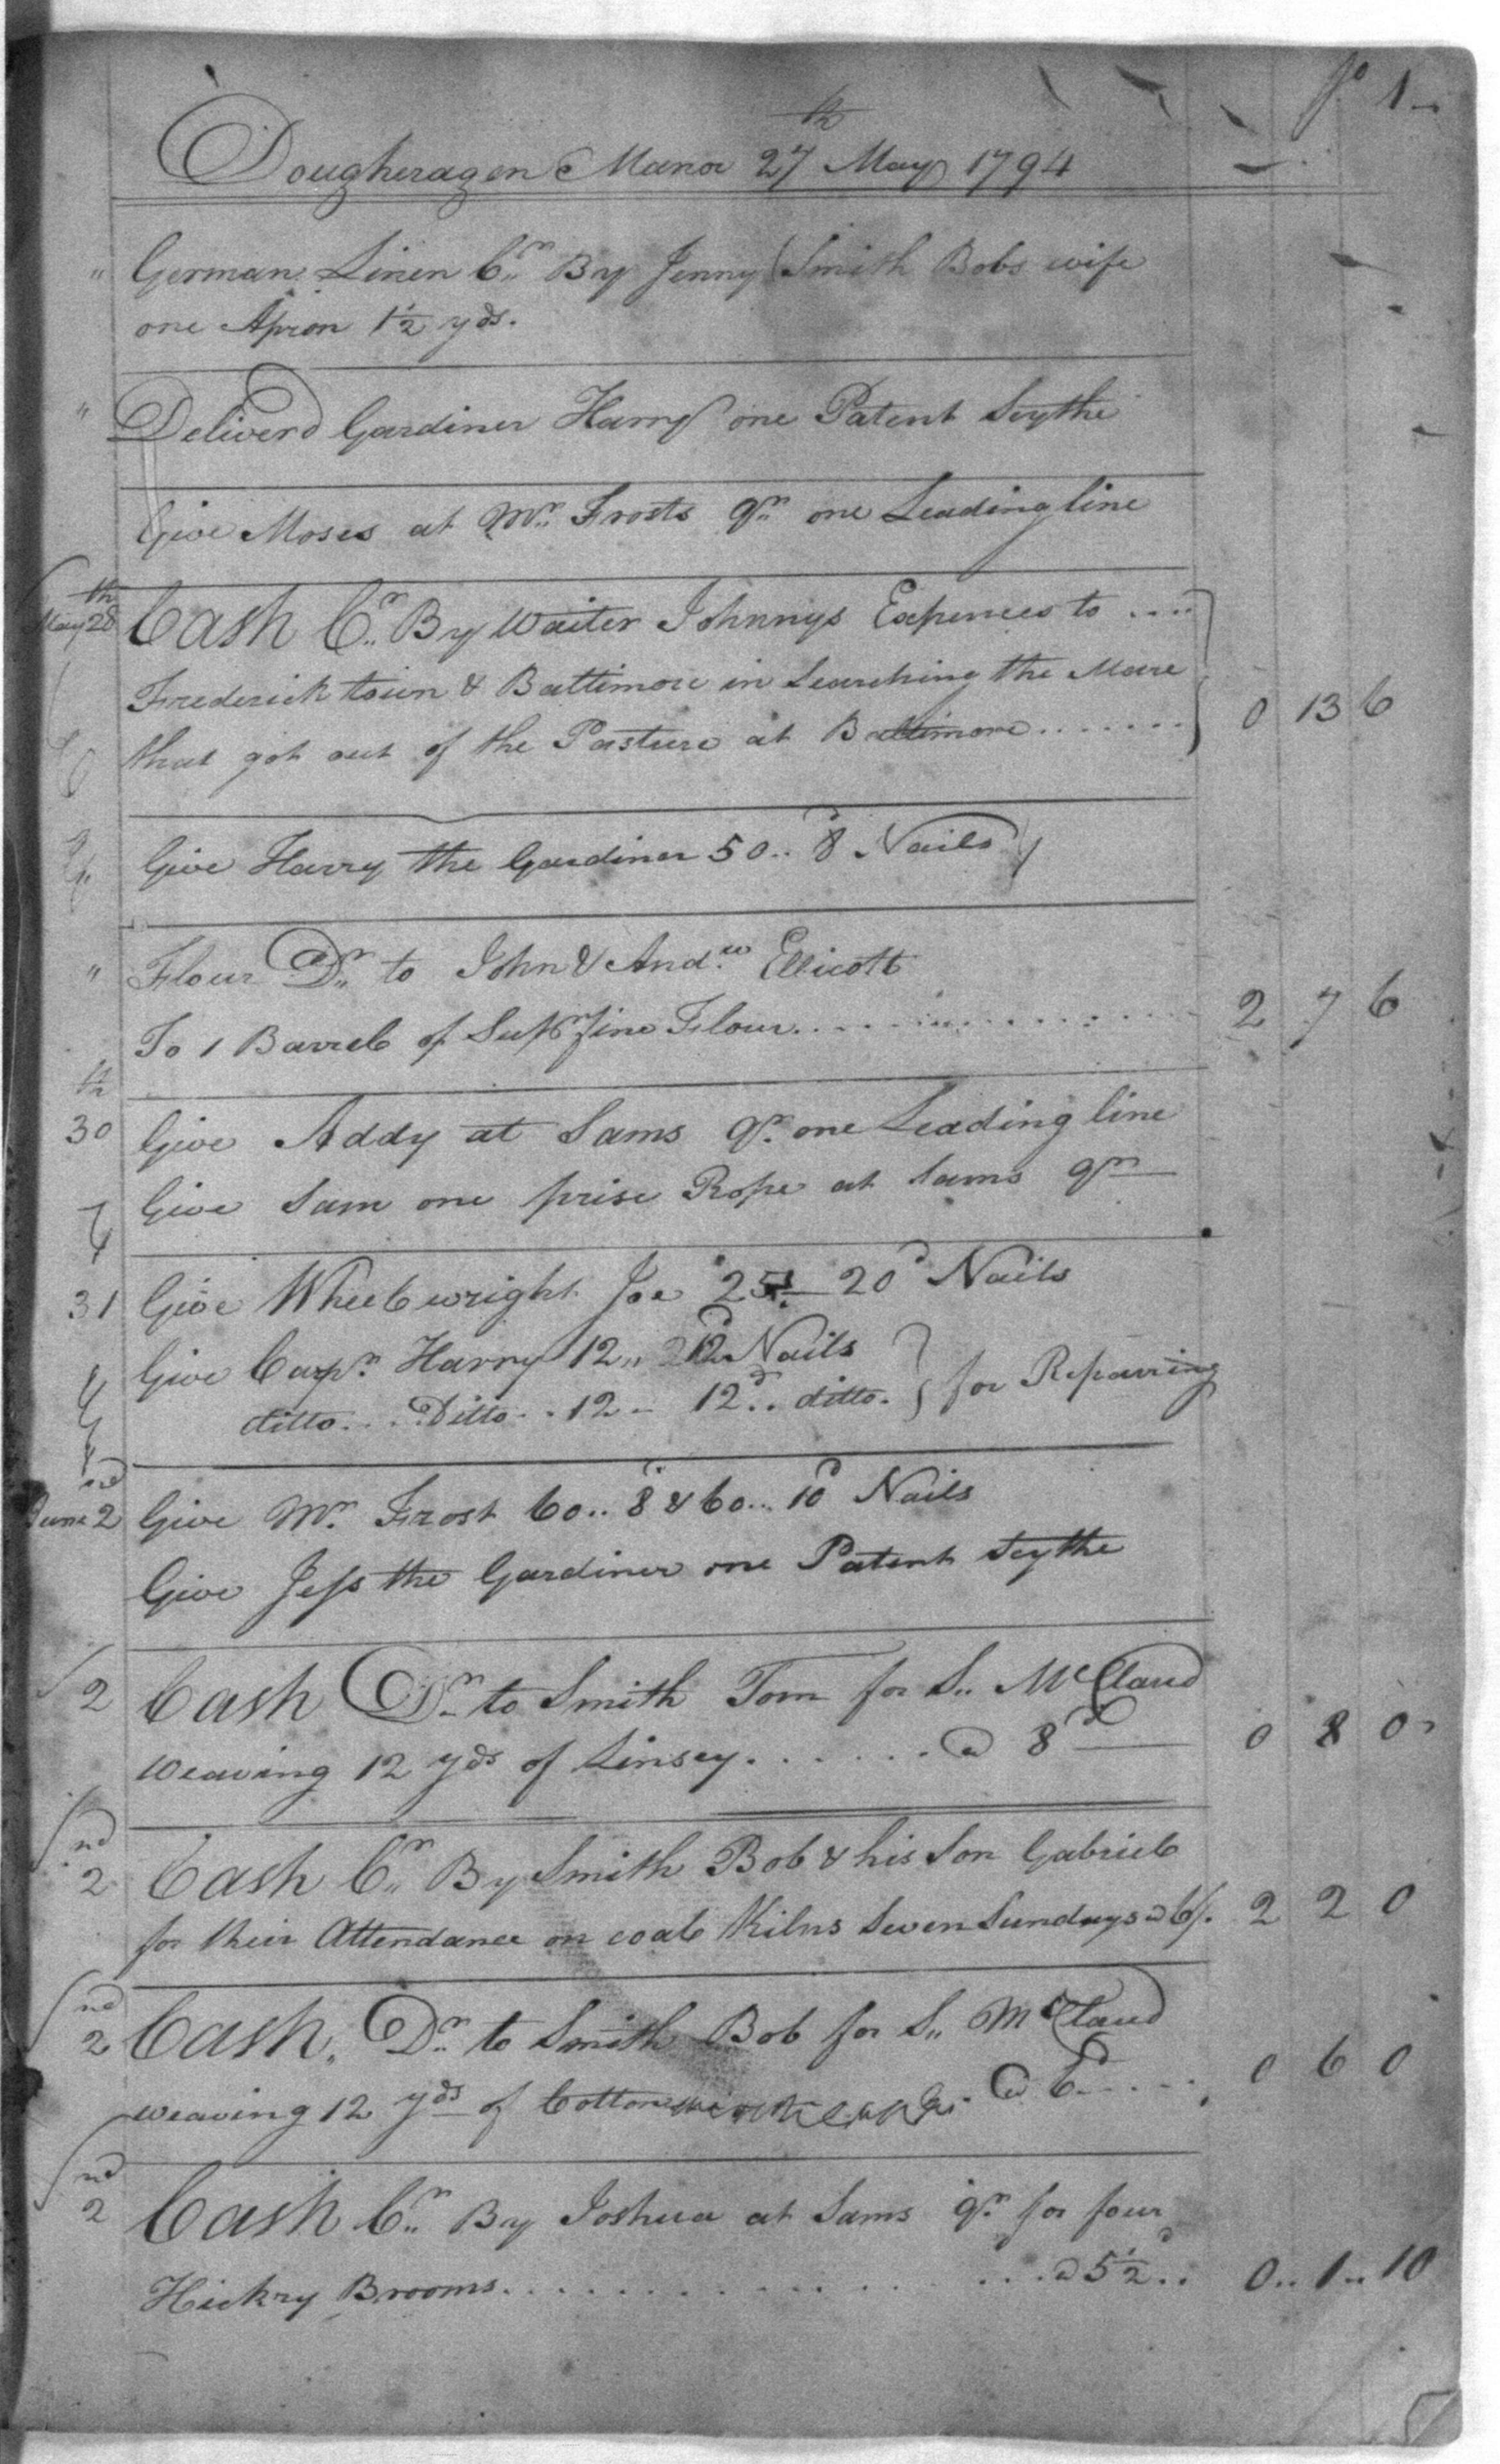 fo 1
Dougheragen Manor 27th May 1794
" German Linen Cr. By Jenny Smith Bobs wife
one Apron 1½ yds.
" Deliverd Gardiner Harry one Patent Scythe
Give Moses at Mr. Frosts qr. one Leading line
May 28th Cash Cr. By Waiter Johnnys Expences to ....
Frederick town & Baltimore in Searching the Mare
that got out of the Pasture at Baltimore ....... 0 13 6
Give Harry the Gardiner 50.. 8d Nails
" Flour Dr. to John & Andw. Ellicott
To 1 Barrel of Supr fine Flour ........ 2 7 6
30th Give Addy at Sams qr. one Leading line
Give Sam one prise Rope at Sams qr.
31 Give Wheelwright Joe 25 — 20d Nails
Give Carpr. Harry 12 .. Nails
ditto... Ditto.. 12 — 12d.. ditto. } for Repairing
June 2nd Give Mr. Frost 60.. 8d & 60.. 10d Nails
Give Jess the Gardiner one Patent Scythe
2 Cash Dr. to Smith Tom for S.. McClaud
weaving 12 yds of Linsey ....... @ 8d — 0 8 0
2nd Cash Cr. By Smith Bob & his Son Gabriel
for their Attendance on coal Kilns Seven Sundays @ 6/. 2 2 0
2nd Cash. Dr. to Smith Bob for S.. McClaud
weaving 12 yds of Cotton @ 6d ..... 0 6 0
2nd Cash Cr. By Joshua at Sams qr. for four
Hickry Brooms ............ @ 5½d.. 0.. 1.. 10